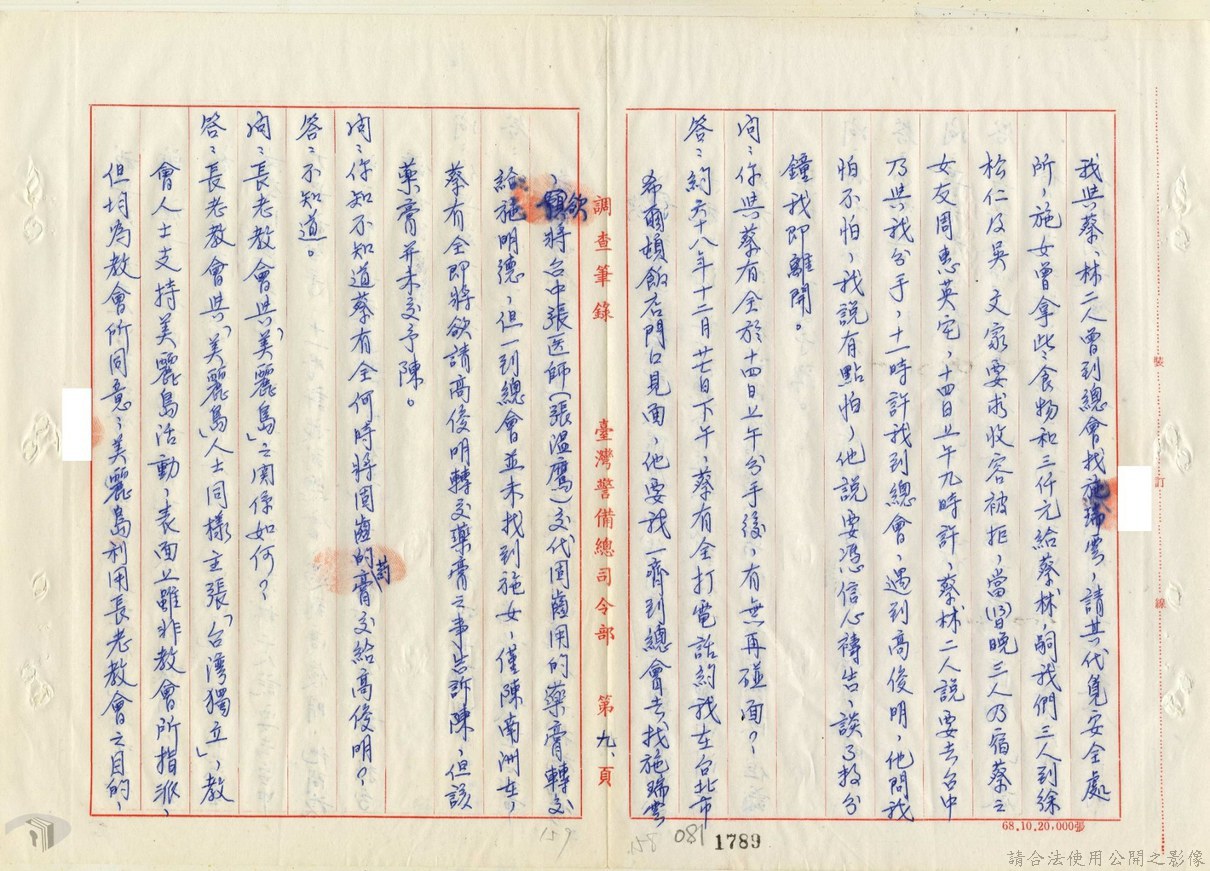 我與蔡、林二人曾到總會找施瑞雲,請其代覓安全處
所,施女曾拿些食物和三仟元給蔡、林,嗣我們三人到徐
松仁及吳文家要求收容被拒,當(13)日晚三人乃宿蔡之
女友周惠英宅,十四日上午九時許,蔡林二人說要去台中
乃與我分手,十一時許我到總會,遇到高俊明,他問我
怕不怕,我說有點怕,他說要憑信心禱告,談了數分
鐘我即離開。
問:你與蔡有全於十四日上午分手後,有無再碰面?
答:約六十八年十二月廿日下午,蔡有全打電話約我在台北市
希爾頓飯店門口見面,他要我一齊到總會去找施瑞雲
調查筆錄 臺灣警備總司令部 第九頁
,欲將台中張医師(張溫鷹)交代固齒用的藥膏轉交
給施明德,但一到總會並未找到施女,僅陳南洲在,
蔡有全即將欲請高俊明轉交藥膏之事告訴陳,但該
藥膏并未交予陳。
問:你知不知道蔡有全何時將固齒的封膏交給高俊明?
答:不知道。
問:長老教會與「美麗島」之関係如何?
答:長老教會與「美麗島」人士同樣主張「台灣獨立」,教
會人士支持美麗島活動,表面上雖非教會所指派,
但均為教會所同意;美麗島利用長老教會之目的,
裝 訂 線
68.10.20,000張
158 081 1789
159
請合法使用公開之影像